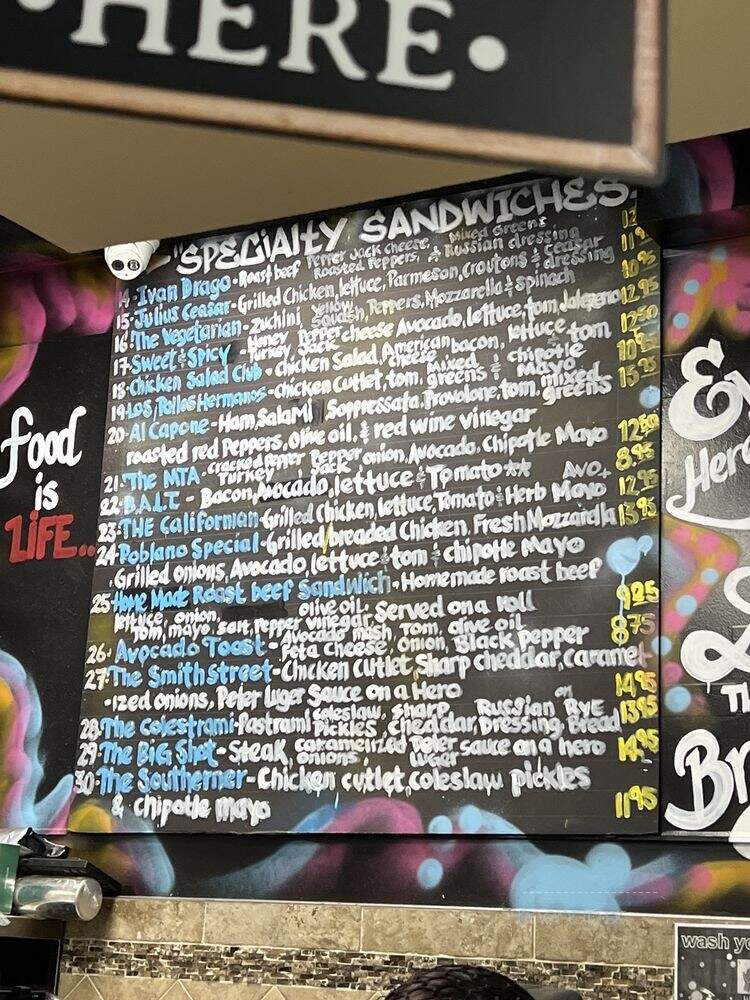 ·HERE·
"SPECIALTY SANDWICHES"
14-Ivan Drago-Roast beef Pepper Jack cheese, Mixed Greens Roasted Peppers, & Russian dressing 12
15-Julius Ceasar-Grilled Chicken, lettuce, Parmesan, croutons & ceasar dressing 11
16-The Vegetarian-Zuchini Yellow Squash, Peppers, Mozzarella & spinach 10.95
17-Sweet & Spicy-Honey Turkey, Pepper Jack cheese Avocado, lettuce, tom, Jalapeno 12.95
18-Chicken Salad Club-Chicken Salad, American Cheese bacon, lettuce, tom 12.50
19-Los PollosHermanos-chicken cutlet, tom, Mixed greens & chipotle Mayo 10.95
20-Al Capone-Ham, Salami, Soppressata, Provolone, tom, mixed greens 15.95
roasted red Peppers, olive oil, & red wine vinegar
21-The MTA-Cracked Pepper Turkey, Pepper Jack onion, Avocado, Chipotle Mayo 12.50
22-B.A.L.T-Bacon, Avocado, lettuce & Tomato** Avo+ 8.95
23-THE Californian-Grilled Chicken, lettuce, Tomato & Herb Mayo 12.95
24-Poblano Special-Grilled/breaded Chicken, Fresh Mozzarella 13.95
Grilled onions, Avocado, lettuce & tom & chipotle Mayo
25-Home Made Roast beef Sandwich-Homemade roast beef
lettuce, onion, Tom, mayo, salt, Pepper, olive oil, vinegar, Served on a roll 9.25
26-Avocado Toast-Avocado mash, Tom, olive oil Feta cheese, onion, Black pepper 8.75
27-The Smith Street-Chicken cutlet, Sharp cheddar, Caramel-
-ized onions, Peter luger Sauce on a Hero 14.95
28-The Colestrami-Pastrami coleslaw, Pickles, sharp cheddar, Russian Dressing, on RyE Bread 13.95
29-The BiG Shot-Steak, caramelized onions, Peter luger sauce on a hero 14.95
30-The Southerner-Chicken cutlet, coleslaw, pickles
& chipotle mayo 11.95
food
is
LiFE..
Her
Th
Br
wash yo